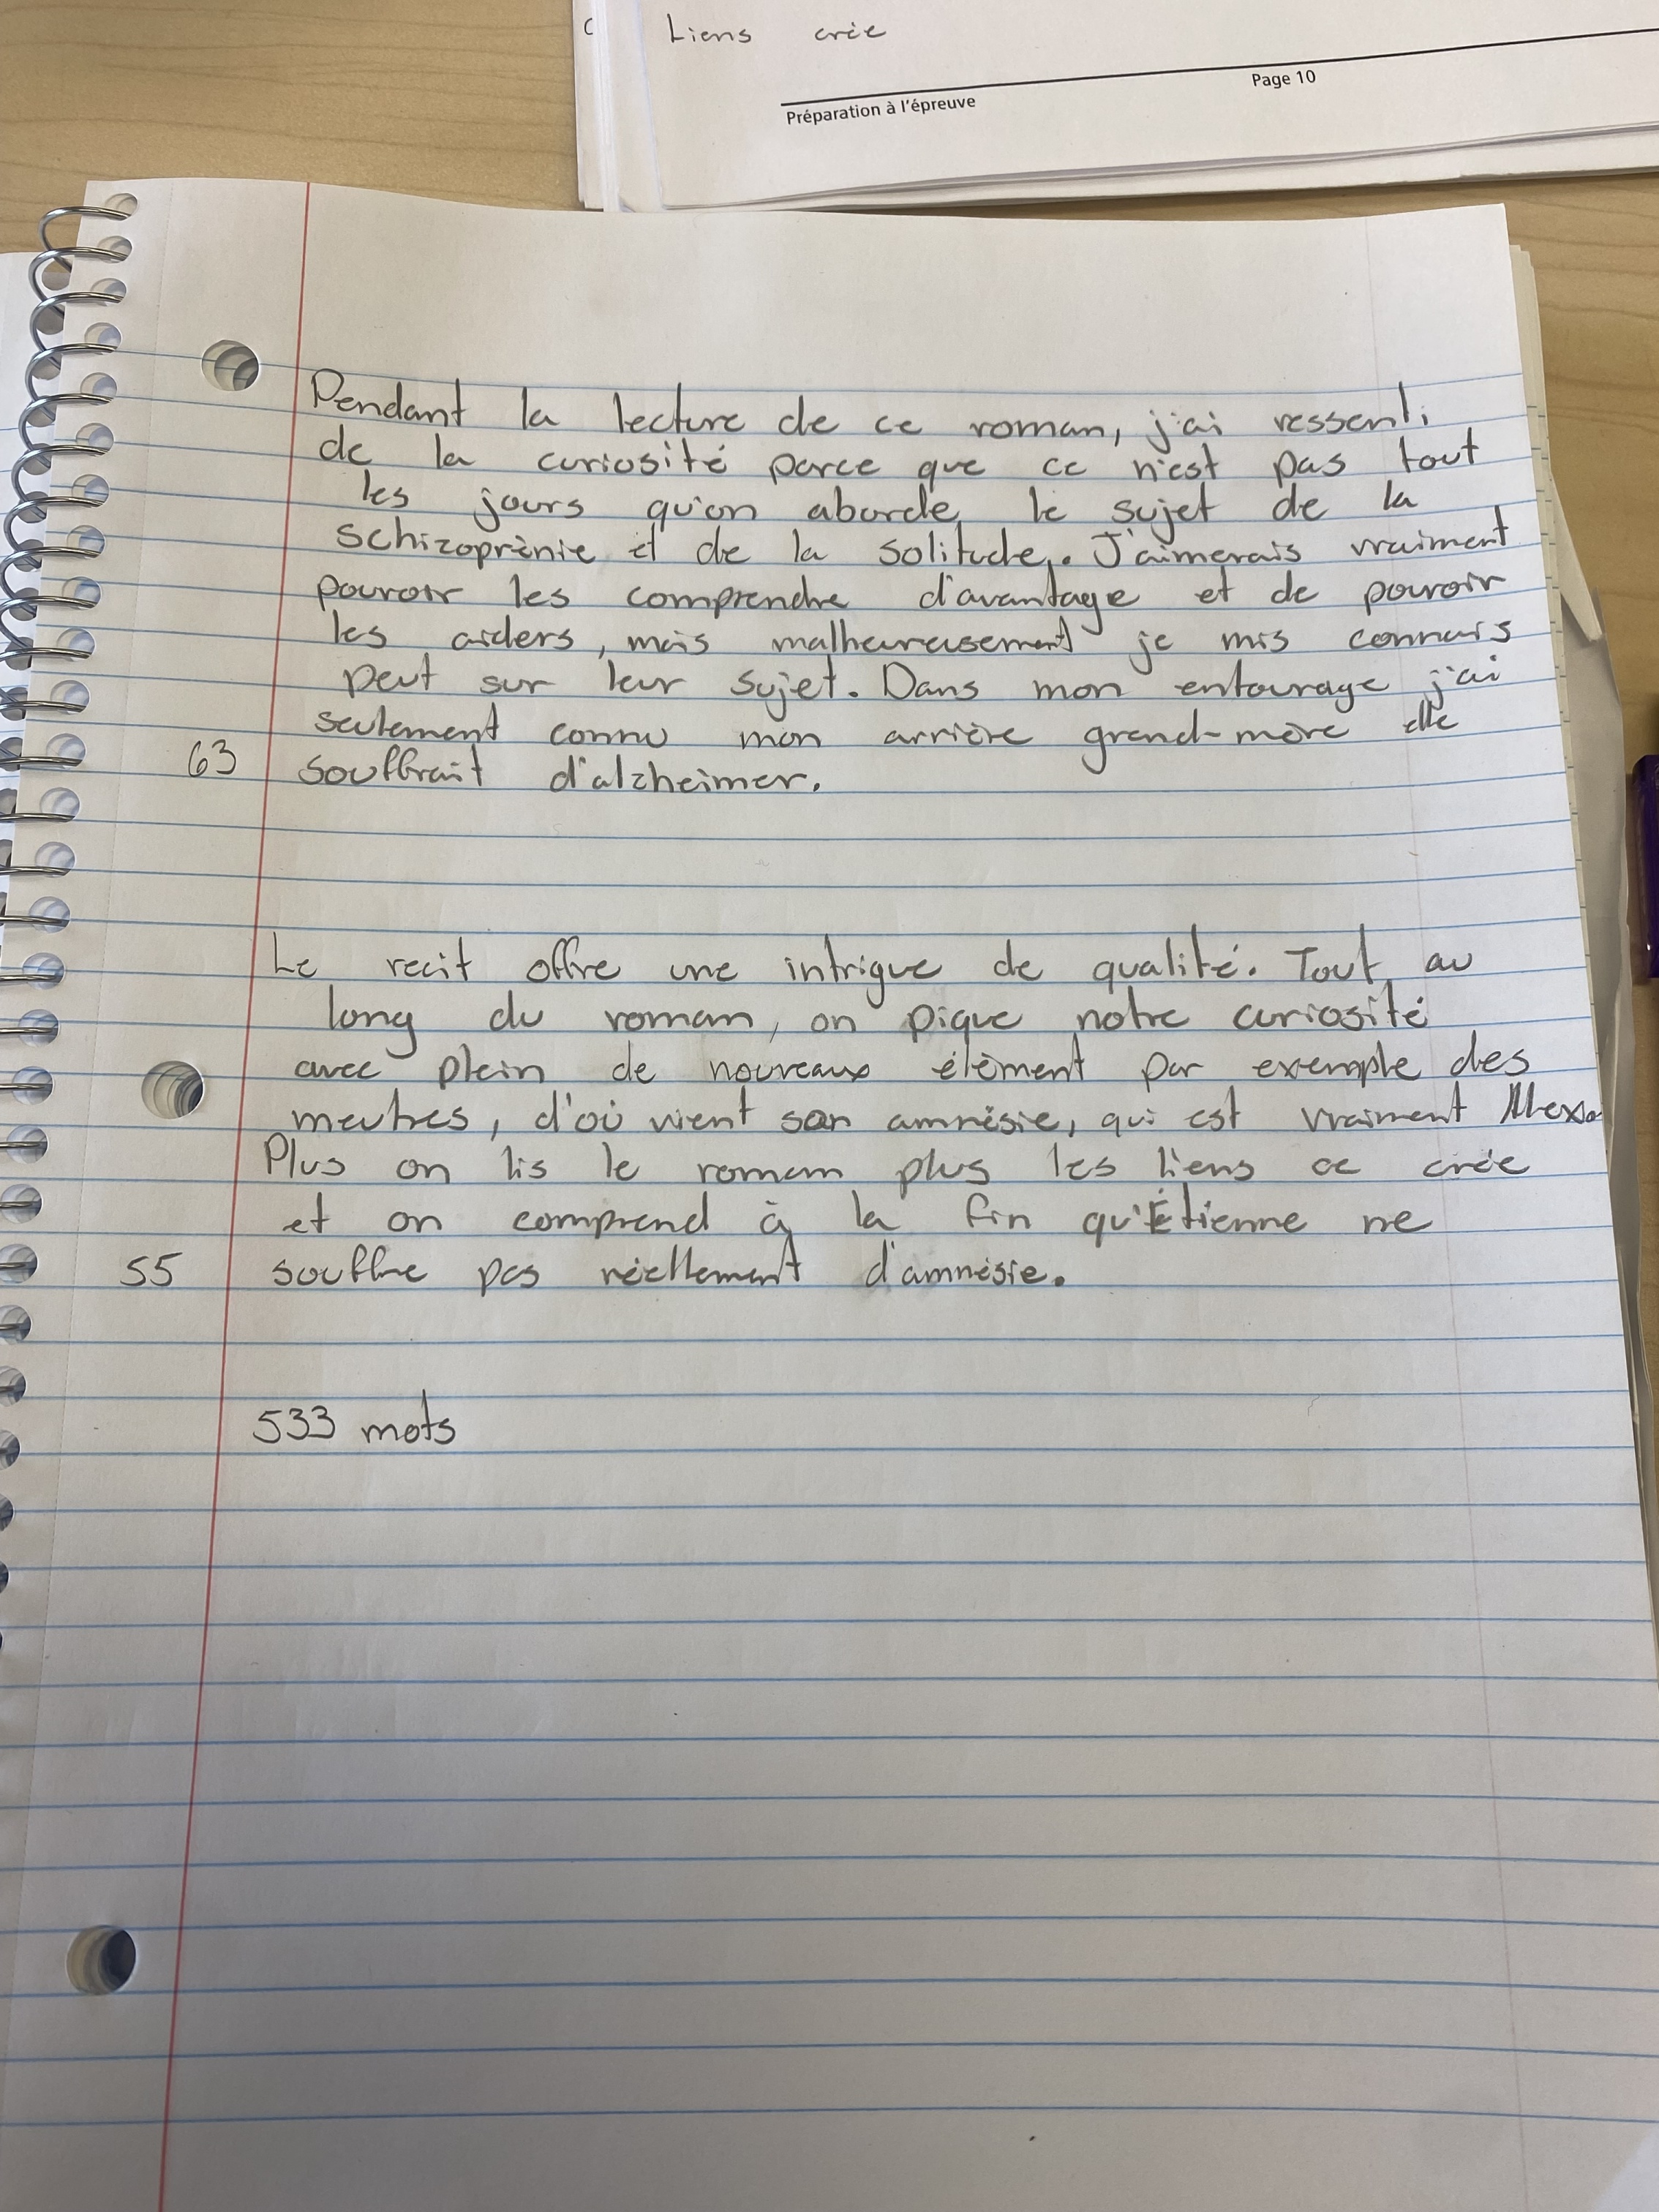 Liens crée
Page 10
Préparation à l'épreuve
Pendant la lecture de ce roman, j'ai ressenti
de la curiosité parce que ce n'est pas tout
les jours qu'on aborde le sujet de la
schizoprènie et de la solitude. J'aimerais vraiment
pouvoir les comprendre d'avantage et de pouvoir
les aiders, mais malheureusement je mis connais
peut sur leur sujet. Dans mon entourage j'ai
seulement connu mon arrière grand-mère elle
63 souffrait d'alzheimer.
Le recit offre une intrigue de qualité. Tout au
long du roman, on pique notre curiosité
avec plein de nouveaux élément par exemple des
meutres, d'où vient son amnésie, qui est vraiment Alexa
Plus on lis le roman plus les liens ce crée
et on comprend à la fin qu'Étienne ne
55 souffre pas réellement d'amnésie.
533 mots